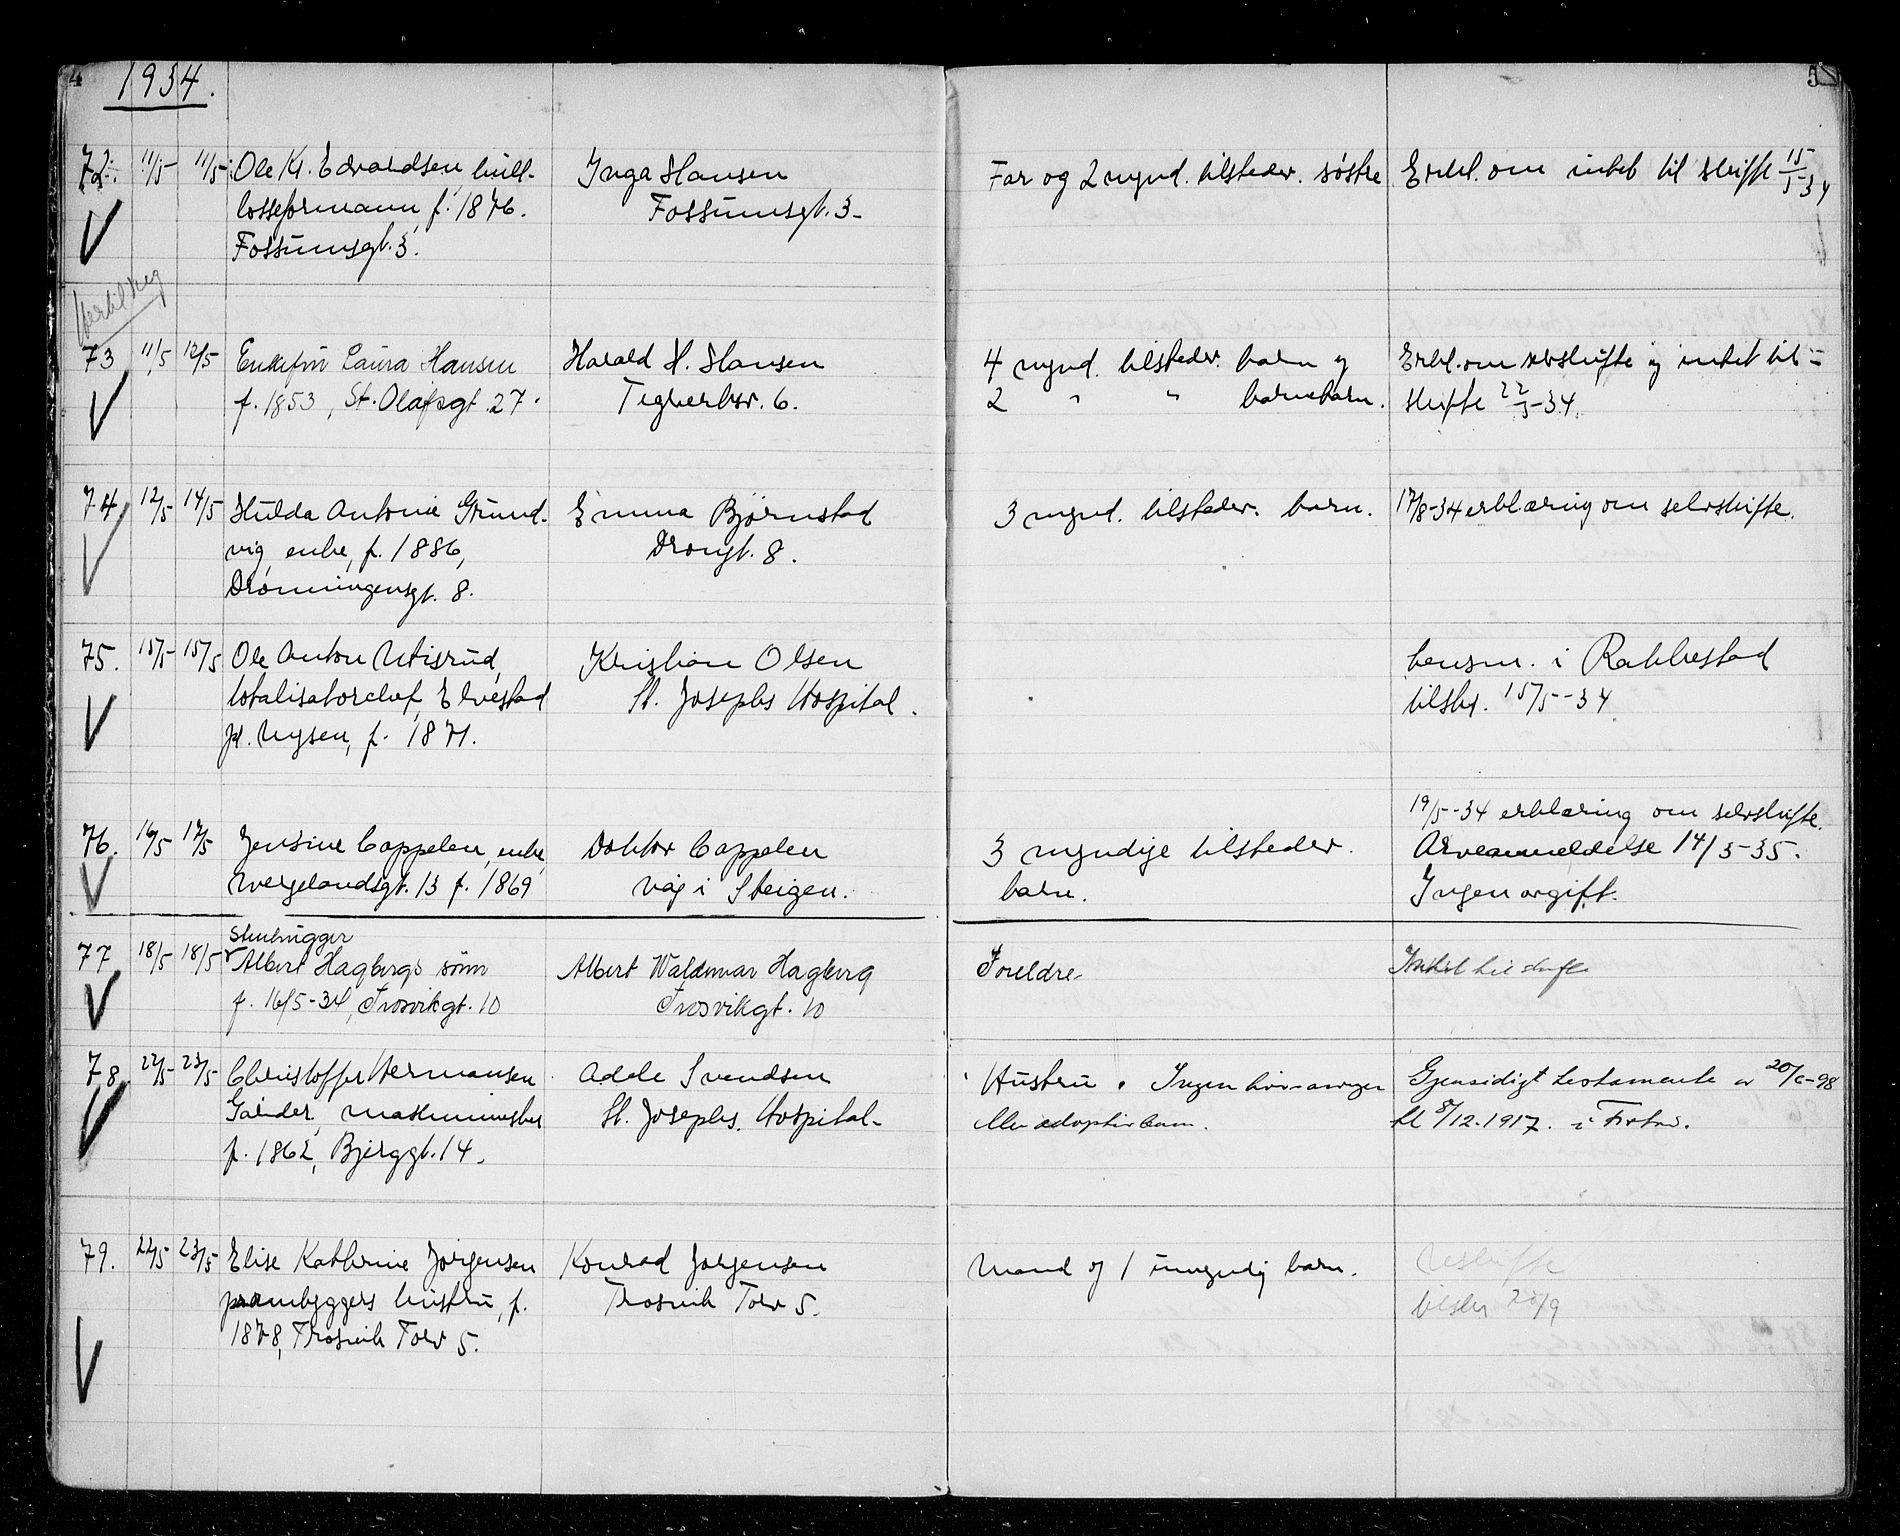 4
1934.
5
72. 11/5 11/5 Ole Kr. Edvardsen, kull-
losseformann, f. 1876.
Fossumsgt. 3.
Inga Hansen
Fossumsgt. 3-
Far og 2 mynd. tilsteder. søstre
Erkl. om intet til skifte 15/5-34
73 11/5 12/5 Enkefru Laura Hansen
f. 1853, St. Olafsgt. 27.
Harald H. Hansen
Tegnerbsr. 6.
4 mynd. tilsteder. barn og
2 " " barnebarn.
Erkl. om selvskifte og intet til
skifte 22/5-34.
74 12/5 14/5 Hulda Antonie Grund-
vig, enke, f. 1886,
Dronningensgt. 8.
Emma Bjørnstad
Drongt. 8.
3 mynd. tilsteder. barn.
17/8-34 erklæring om selvskifte.
75. 15/5 15/5 Ole Anton Utisrud,
totalisatorchef, Elvestad
pl. Mysen, f. 1871.
Kristian Olsen
St. Josephs Hospital.
lensm. i Rakkestad
tilskr. 15/5-34
76. 16/5 17/5 Jensine Cappelen, enke,
Wergelandsgt. 13 f. 1869
Doktor Cappelen
Våg i Steigen.
3 myndige tilsteder.
barn.
19/5-34 erklæring om selvskifte.
Arveanmeldelse 14/3-35.
Ingen avgift.
77 18/5 18/5 Stenhugger
Albert Hagbergs sønn
f. 16/5-34, Trosvikgt. 10
Albert Waldemar Hagberg
Trosvikgt. 10
Foreldre
Intet til skifte
78 22/5 23/5 Christoffer Hermansen
Gander, maskinmester
f. 1862, Bjerggt. 14.
Adele Svendsen
St. Josephs Hospital-
Hustru. Ingen livsarvinger
eller adoptivbarn.
Gjensidigt testamente av 20/6-98
tl 8/12.1917.
79. 22/5 23/5 Elise Kathrine Jørgensen
prambyggers hustru, f.
1878, Trosvik Torv 5.
Konrad Jørgensen
Trosvik Torv 5.
Mand og 1 umyndig barn.